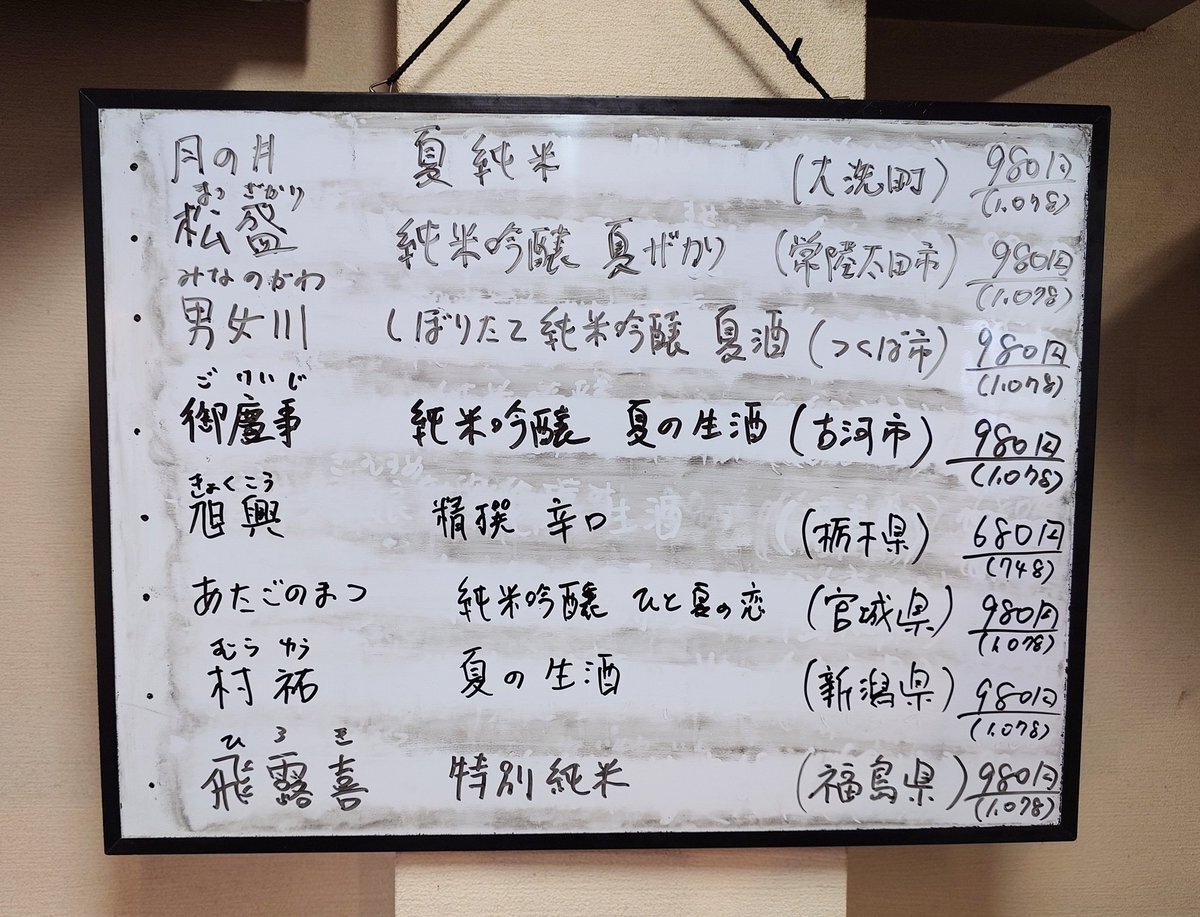 ・月の井 夏純米 (大洗町) 980円
(1.078)
まつざかり
・松盛 純米吟醸 夏ざかり (常陸太田市) 980円
(1.078)
みなのかわ
・男女川 しぼりたて純米吟醸 夏酒 (つくば市) 980円
(1.078)
ごけいじ
・御慶事 純米吟醸 夏の生酒 (古河市) 980円
(1.078)
きょくこう
・旭興 精撰 辛口 (栃木県) 680円
(748)
・あたごのまつ 純米吟醸 ひと夏の恋 (宮城県) 980円
(1.078)
むらゆう
・村祐 夏の生酒 (新潟県) 980円
(1.078)
ひろき
・飛露喜 特別純米 (福島県) 980円
(1.078)